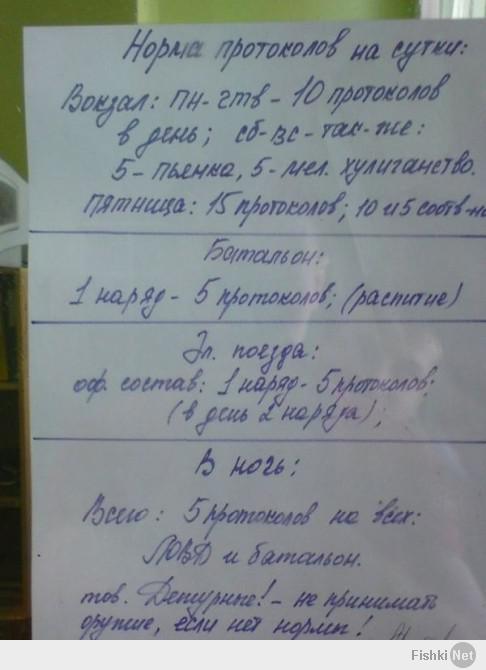 Норма протоколов на сутки:
Вокзал: пн-чтв - 10 протоколов
в день; сб-вс - так-же:
5 - пьянка, 5 - мел. хулиганство.
Пятница: 15 протоколов; 10 и 5 соотв-но
Батальон:
1 наряд - 5 протоколов; (распитие)
Эл. поезда:
оф. состав: 1 наряд - 5 протоколов;
(в день 2 наряда);
В ночь:
Всего: 5 протоколов на всех:
ЛОВД и батальон.
тов. Дежурные! - не принимать
оружие, если нет нормы!
Fishki Net